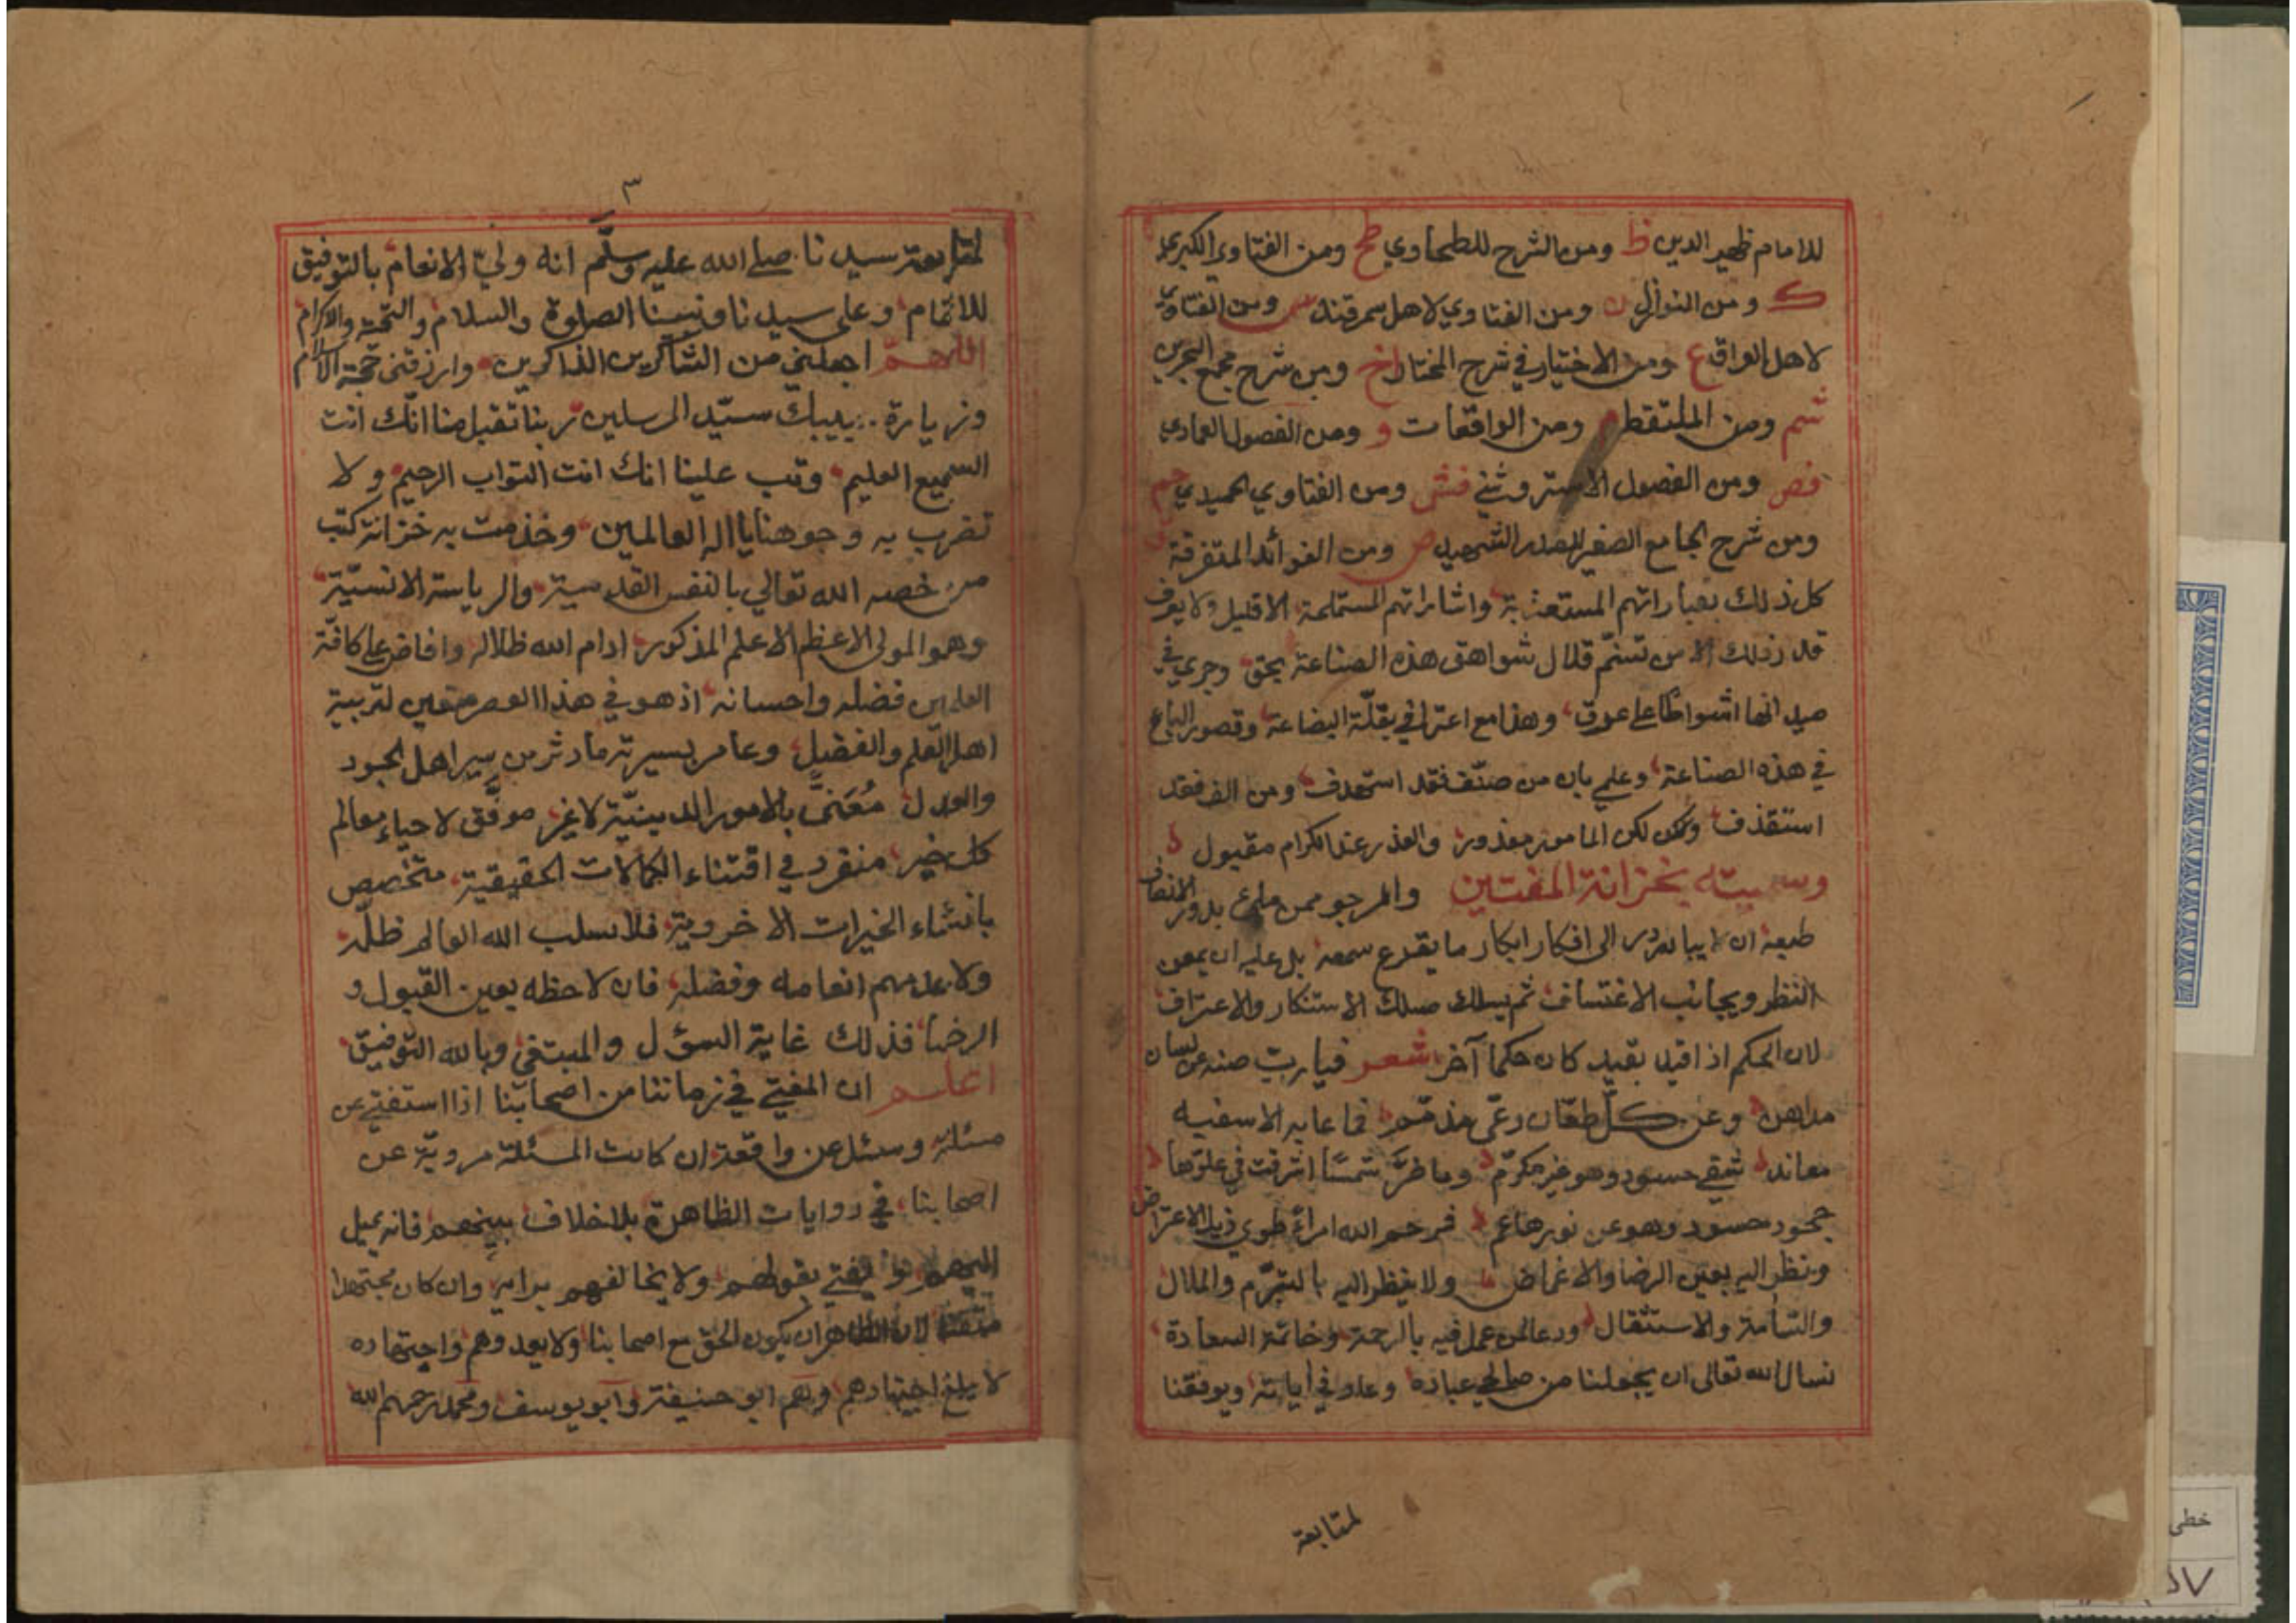 للامام ظهير الدين ظ ومن الشرح للطحاوي طح ومن الفتاوي الكبري
ك ومن النوازل ن ومن الفتاوي لاهل سمرقند س ومن الفتاوي
لاهل العراق ع ومن الاختيار في شرح المختار اخ ومن شرح مجمع البحرين
شم ومن الملتقط م ومن الواقعات و ومن الفصول العمادي
فص ومن الفصول الاستروشني فش ومن الفتاوي الحميدي
ومن شرح الجامع الصغير للصدر الشهيد ص ومن الفوائد المتفرقة
كل ذلك بعباراتهم المستعذبة واشاراتهم المستملحة الا قليل ولا يعرف
قدر ذلك الا من تسنم قلال شواهق هذه الصناعة بحق وجري في
ميدانها اشواطا على عرق وهذا مع اعترافي بقلة البضاعة وقصور الباع
في هذه الصناعة وعلمي بان من صنف فقد استهدف ومن الف فقد
استقذف ولكن المامور معذور والعذر عند الكرام مقبول
وسميته بخزانة المفتين والمرجو ممن
طبعه ان لا يبادر الى افكار ابكار ما يقرع سمعه بل عليه ان يمعن
النظر ويجانب الاعتساف ثم يسلك مسلك الاستنكار والاعتراف
لان الحكم اذا قيد بقيد كان حكما آخر شعر فيارب صنه عن لسان
مداهن وعن كل طعان مذمم فما عابه الا سفيه
معاند شقي حسود وهو غير مكرم وما ضر شمسا اشرقت في علوها
جحود حسود وهو عن نورها عم فرحم الله امراء طوي ذيل الاعتراض
ونظر اليه بعين الرضا والاغماض ولا ينظر اليه بالتبرم والملال
والسآمة والاستثقال ودعا لمن عمل فيه بالرحمة وخاتمة السعادة
نسال الله تعالى ان يجعلنا من صالحي عباده ويوفقنا
لمتابعة
٣
لمتابعة سيدنا صلى الله عليه وسلم انه ولي الانعام بالتوفيق
للاتمام وعلى سيدنا ونبينا الصلوة والسلام والتحية والاكرام
اللهم اجعلني من الشاكرين الذاكرين وارزقني حجة الاسلام
وزيارة سيد المرسلين ربنا تقبل منا انك انت
السميع العليم وتب علينا انك انت التواب الرحيم ولا
تضرب به وجوهنا يا اله العالمين وخدمت به خزانة كتب
من خصه الله تعالي بالنفس القدسية والرياسة الانسية
وهو المولى الاعظم الاعلم المذكور ادام الله ظلاله وافاض على كافة
العلمين فضله واحسانه اذ هو في هذا العصر متعين لتربية
اهل العلم والفضل وعامر بسيرته ما دثر من سير اهل الجود
والعدل مُعَنًّى بالامور الدينية لا غير موفق لاحياء معالم
كل خير منفرد في اقتناء الكمالات الحقيقية متخصص
بانشاء الخيرات الاخروية فلا سلب الله العالم ظله
ولا عدمهم انعامه وفضله فان لاحظه بعين القبول و
الرضا فذلك غاية السؤل والمبتغى وبالله التوفيق
اعلم ان المفتي في زماننا من اصحابنا اذا استفتي عن
مسئلة وسئل عن واقعة ان كانت المسئلة مروية عن
اصحابنا في روايات الظاهرة بلا خلاف بينهم فانه يميل
اليهم ويفتي بقولهم ولا يخالفهم برايه وان كان مجتهدا
متقنا لان الظاهر ان يكون الحق مع اصحابنا ولا يعدوهم واجتهاده
لا يبلغ اجتهادهم وهم ابو حنيفة وابو يوسف ومحمد رحمهم الله
خطي